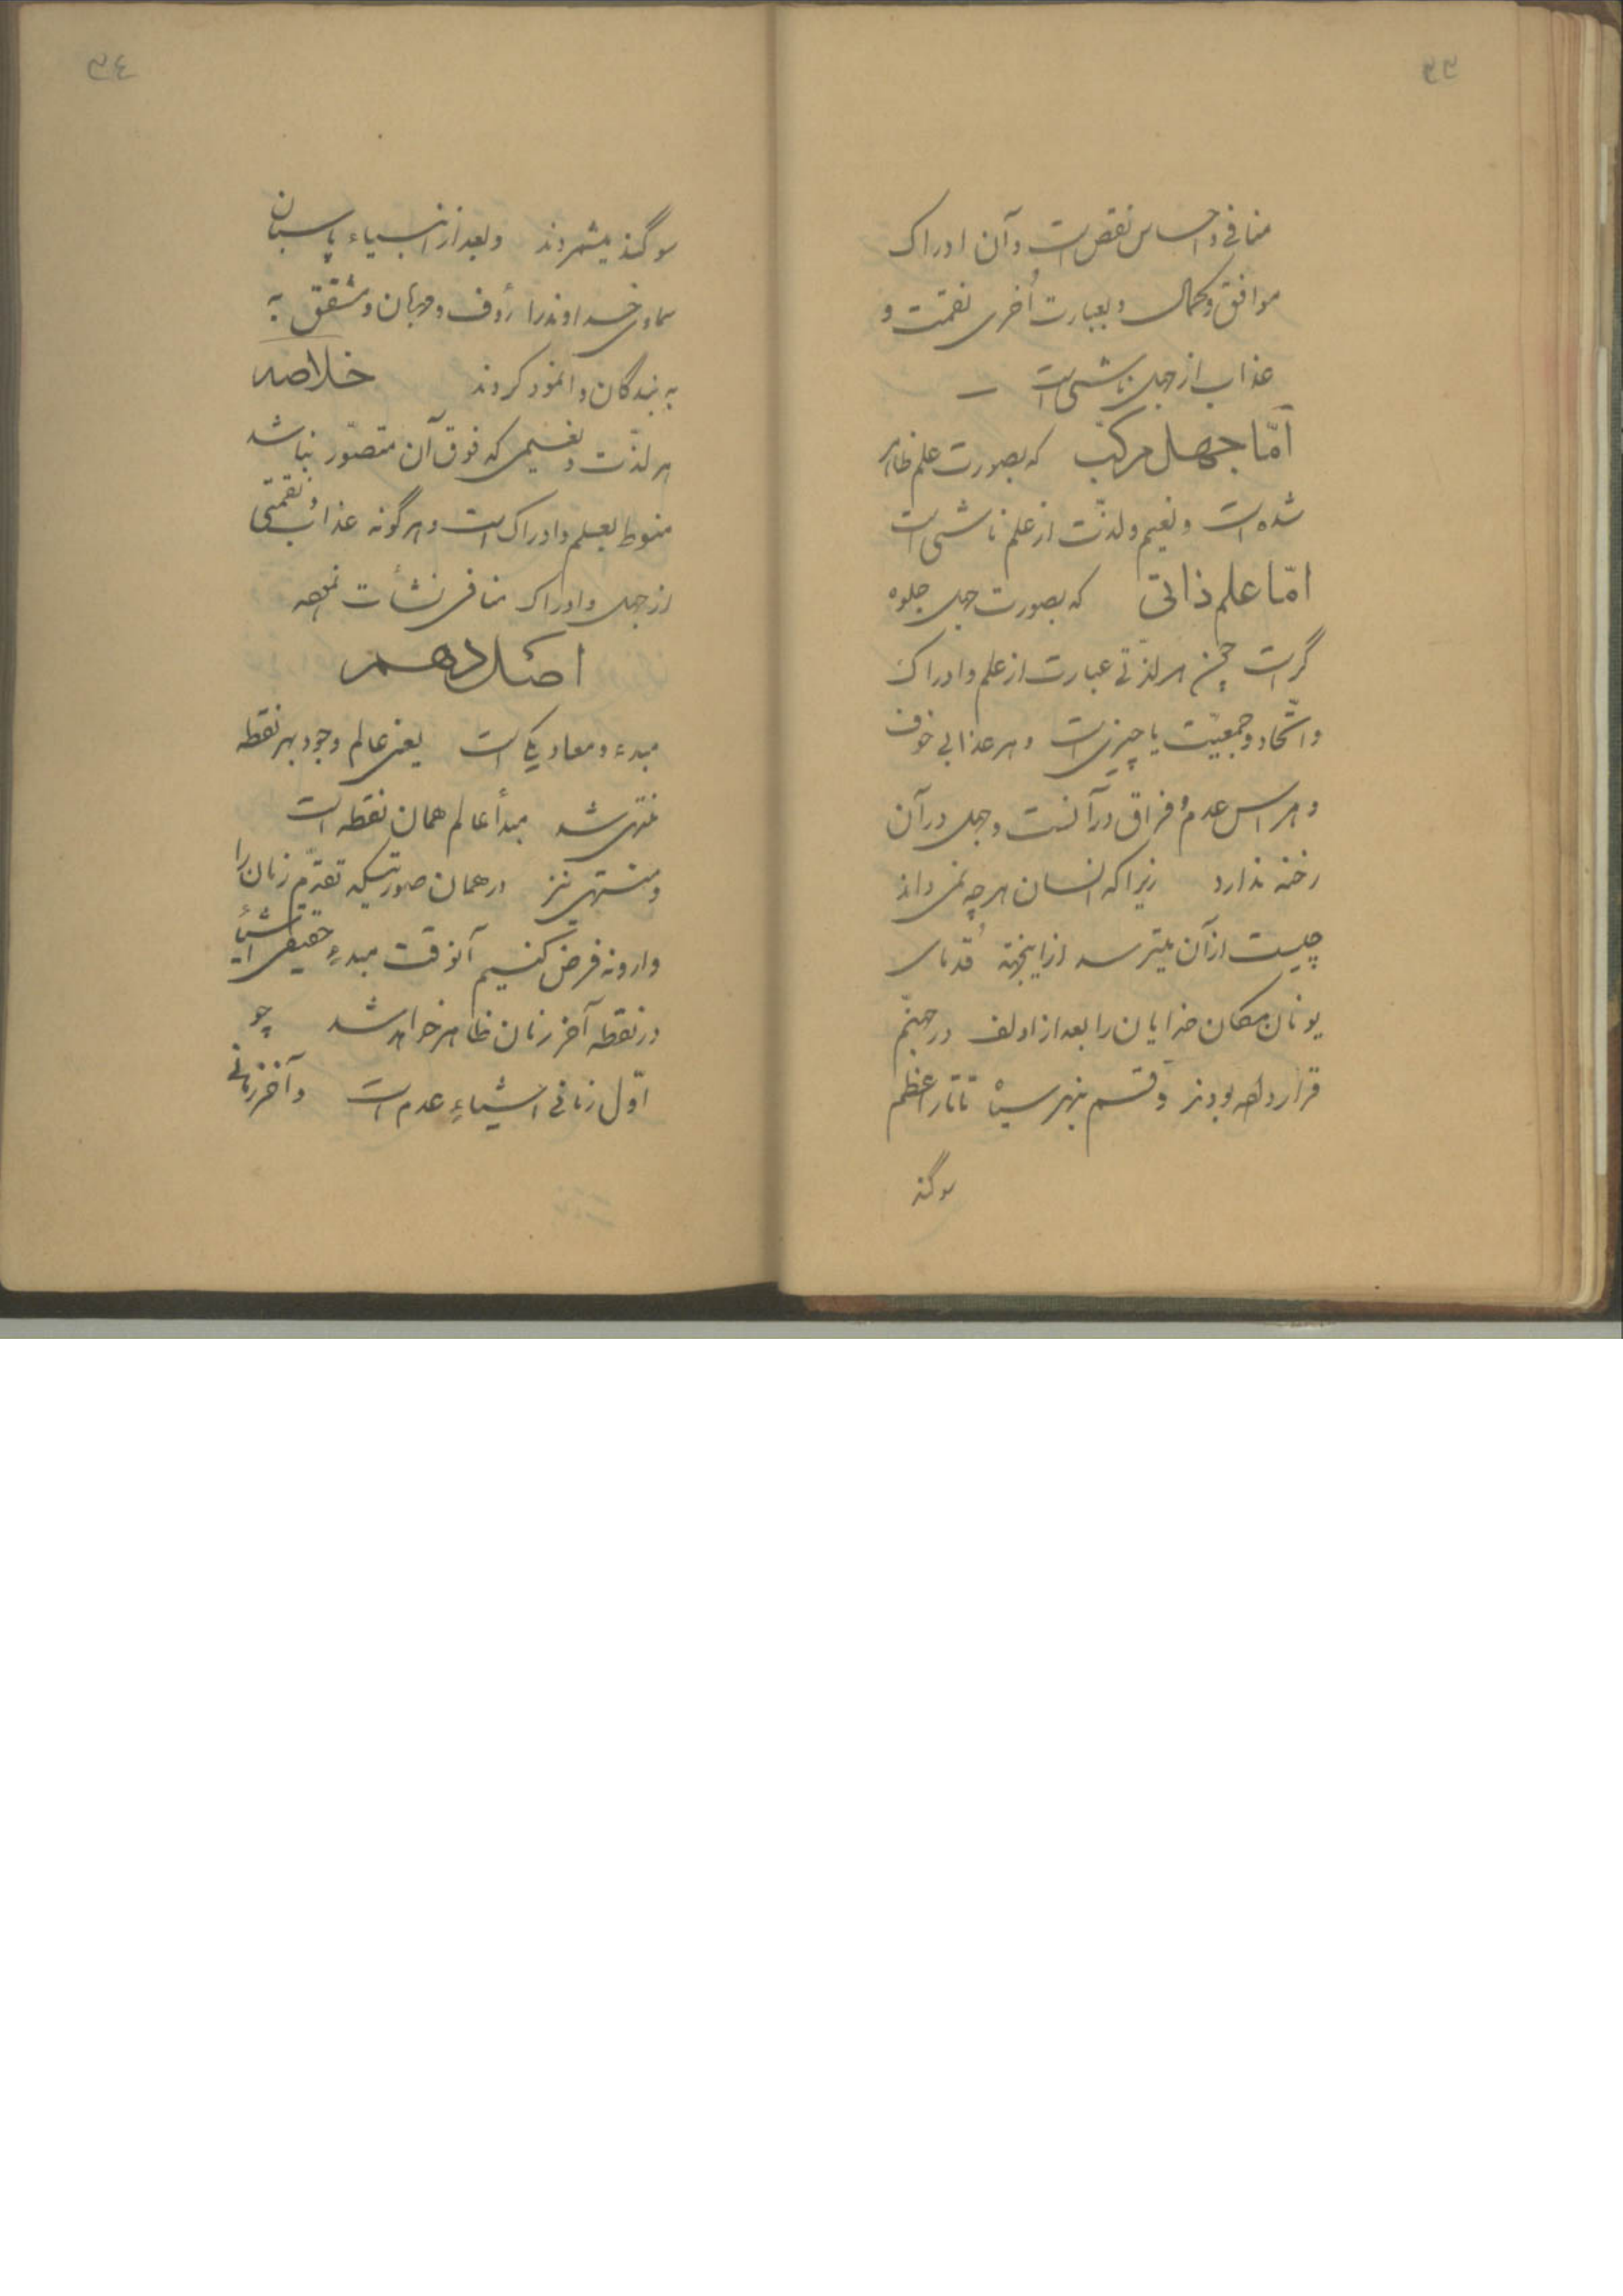 ٣٣
منافی و احساس نقص است و آن ادراک
موافق و کمال و بعبارت اُخری نقمت و
عذاب از جهل ناشی است –
امّا جهل مرکب که بصورت علم ظاهر
شده است و نعیم و لذّت از علم ناشی است
امّا علم ذاتی که بصورت جهل جلوه
گر است چون هر لذّتی عبارت از علم و ادراک
و اتّحاد و جمعیّت با چیزی است و هر عذابی خوف
و هراس عدم و فراق در آنست و جهل در آن
رخنه ندارد زیرا که انسان هرچه نمی داند
چیست از آن میترسد از اینجهة قدمای
یونان مکان خدایان را بعد از اولف در جهنّم
قرار داده بودند و قسم بنهر سیاه تاتار اعظم
سوگند
٣٤
سوگند میشمردند و بعد از انبیاء پاسبان
سماوی خداوند را رؤف و مهربان و مشفق به
به بندگان وانمود کردند خلاصه
هر لذّت و نعیمی که فوق آن متصّور نباشد
منوط بعلم و ادراک است و هرگونه عذاب و نقمتی
از جهل و ادراک منافی نشأت نموده
اصل دهم
مبدء و معاد یکی است یعنی عالم وجود بهر نقطه
منتهی شد مبدأ عالم همان نقطه است
و منتهی نیز در همان صورتیکه تقدّم زمان را
وارونه فرض کنیم آنوقت مبدءِ حقیقی اشیأ
در نقطه آخر زمان ظاهر خواهد شد چو
اوّل زمانی اشیاءِ عدم است و آخر زمانی